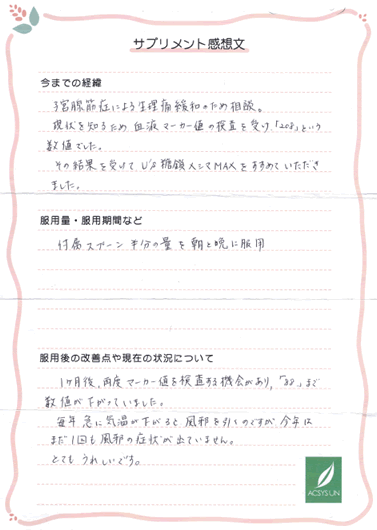 サプリメント感想文
今までの経緯
子宮腺筋症による生理痛緩和のため相談。
現状を知るため血液マーカー値の検査を受け「208」という
数値でした。
その結果を受けて U's 糖鎖 人シマMAXをすすめていただき
ました。
服用量・服用期間など
付属スプーン半分の量を朝と晩に服用
服用後の改善点や現在の状況について
1ヶ月後、再度マーカー値を検査する機会があり、「88」まで
数値が下がっていました。
毎年 急に気温が下がると風邪を引くのですが今年は
まだ1回も風邪の症状が出ていません。
とてもうれしいです。
ACSYSUN